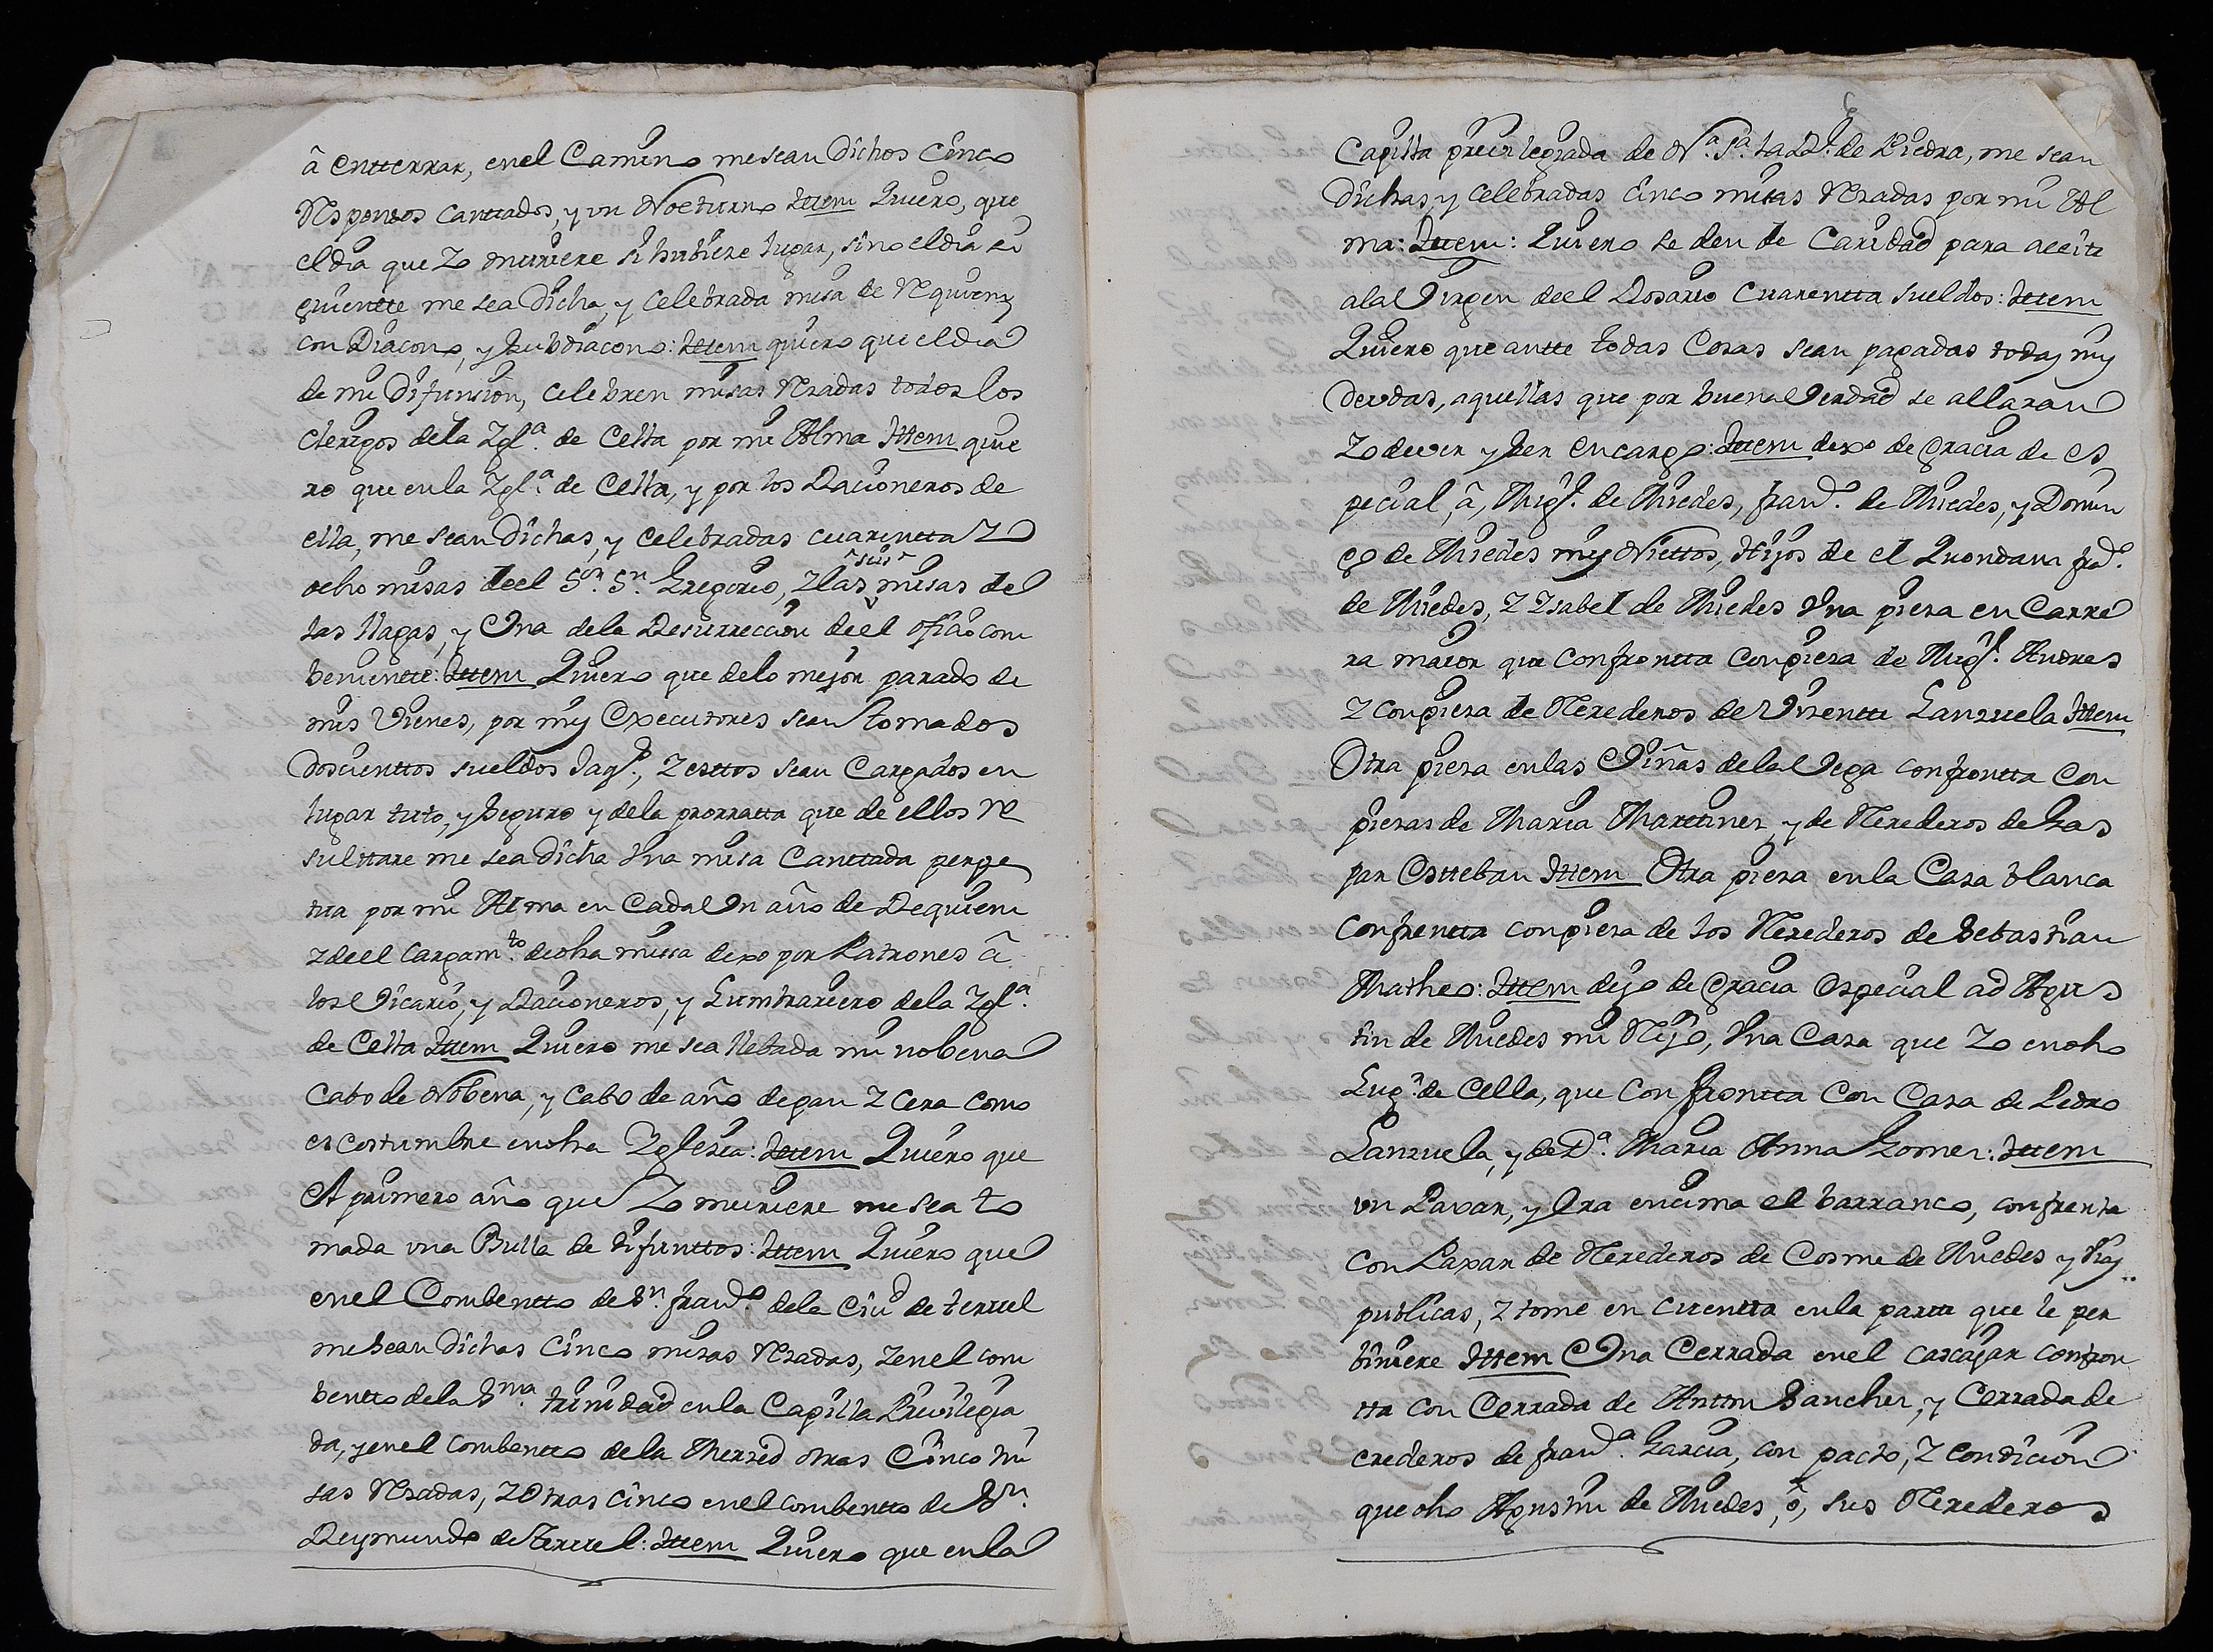 â entterrar, en el Camino me sean Dichos Cinco
Responsos cantados, y un Nocturno Ittem Quiero, que
el dia que Io muriere si hubiere lugar, sino el dia si
guientte me sea Dicha, y celebrada misa de Requiem
con Diacono, y Subdiacono: Ittem quiero que el dia
de mi Difunsion, celebren misas Rzadas todos los
clerigos de la Igl.ª de Cella por mi Alma Ittem quie
ro que en la Igl.ª de Cella, y por los Racioneros de
ella, me sean Dichas, y celebradas cuarentta I
ocho misas de el S.or S.n Gregorio, I las seis misas de
las llagas, y Una de la Resurreccion de el oficio com
benientte: Ittem Quiero que de lo mejor parado de
mis Vienes, por mis Executores sean tomados
Doscienttos sueldos Jaq.s, I esttos sean Cargados en
lugar tuto, y Seguro y de la prorratta que de ellos Re
sulttare me sea Dicha Una misa Canttada perpe
tua por mi Alma en Cada Un año de Requiem
I de el cargam.to de dha missa dexo por Patrones â
los Vicario, y Racioneros, y Lumbrariero de la Igl.ª
de Cella Ittem Quiero me sea llebada mi nobena
Cabo de Nobena, y Cabo de año de pan I Cera como
es costumbre en dha Iglesia: Ittem Quiero que
el primero año que Io muriere me sea to
mada una Bulla de difunttos: Ittem Quiero que
en el Conbentto de S.n fran.co de la Ciu.d de teruel
me Sean Dichas Cinco misas Rzadas, I en el com
bentto de la S.ma trinidad en la Capilla Previlegia
da, y en el combentto de la Merzed otras Cinco mi
sas Rzadas, I Otras Cinco en el combentto de S.n
Reymundo de Terruel: Ittem Quiero que en la
Capilla previlegiada de N.ª S.ª la de Piedra, me sean
Dichas y Celebradas Cinco misas Rzadas por mi Al
ma: Ittem: Quiero se den de Caridad para aceite
a la Virgen de el Rosario Cuarentta sueldos: Ittem
Quiero que antte todas Cosas sean pagadas todas mis
Deudas, aquellas que por buena Verdad se allaran
Io dever y Ser en cargo: Ittem dexo de Gracia de es
pecial, â, Mig.l de Miedes, fran.co de Miedes, y Domin
go de Miedes mis Niettos, Hijos de el Quondam fra.co
de Miedes, I Isabel de Miedes Una pieza en Carre
ra maior que confrontta Con pieza de Mig.l Andres
I con pieza de Herederos de Vizentte Lanzuela Ittem
Otra pieza en las Viñas de la Vega confrontta Con
piezas de Maria Marttinez, y de Herederos de Gas
par Estteban Ittem Otra pieza en la Casa blanca
confrentta con pieza de los Herederos de Sebastian
Matheo: Ittem dejo de Gracia especial ad Agus
tin de Miedes mi Hijo, Una Casa que Io en dho
Lug.r de Cella, que Confrontta Con Casa de Pedro
Lanzuela, y de D.ª Maria Anna Gomez: Ittem
un Paxar, y Era encima el barranco, confrenta
Con Paxar de Herederos de Cosme de Miedes y Vias
publicas, I tome en cuentta en la partte que le per
tiniere Ittem Una Cerrada en el cascajar confron
tta con Cerrada de Anton Sanchez, y Cerrada de
erederos de fran.ca Garcia, con pacto, I condicion
que dho Agustin de Miedes, ô, sus Herederos